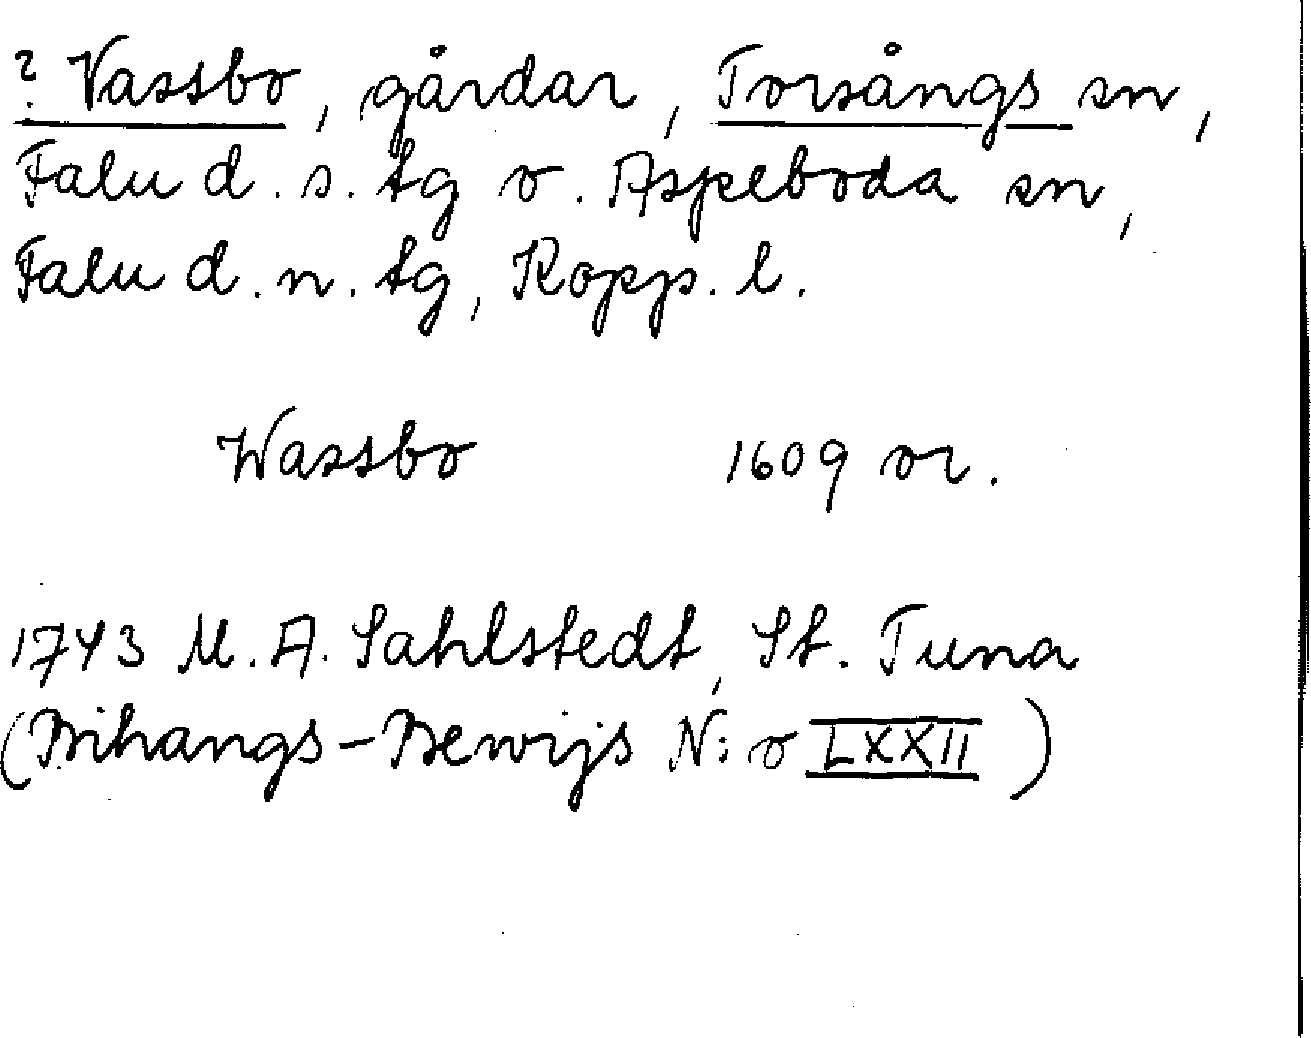 ? Vassbo, gårdar, Torsångs sn,
Falu d. s. tg o. Aspeboda sn,
Falu d. n. tg, Kopp. l.
Wassbo 1609 or.
1743 M. A. Sahlstedt, St. Tuna
(Bihangs-Bewijs N:o LXXII)